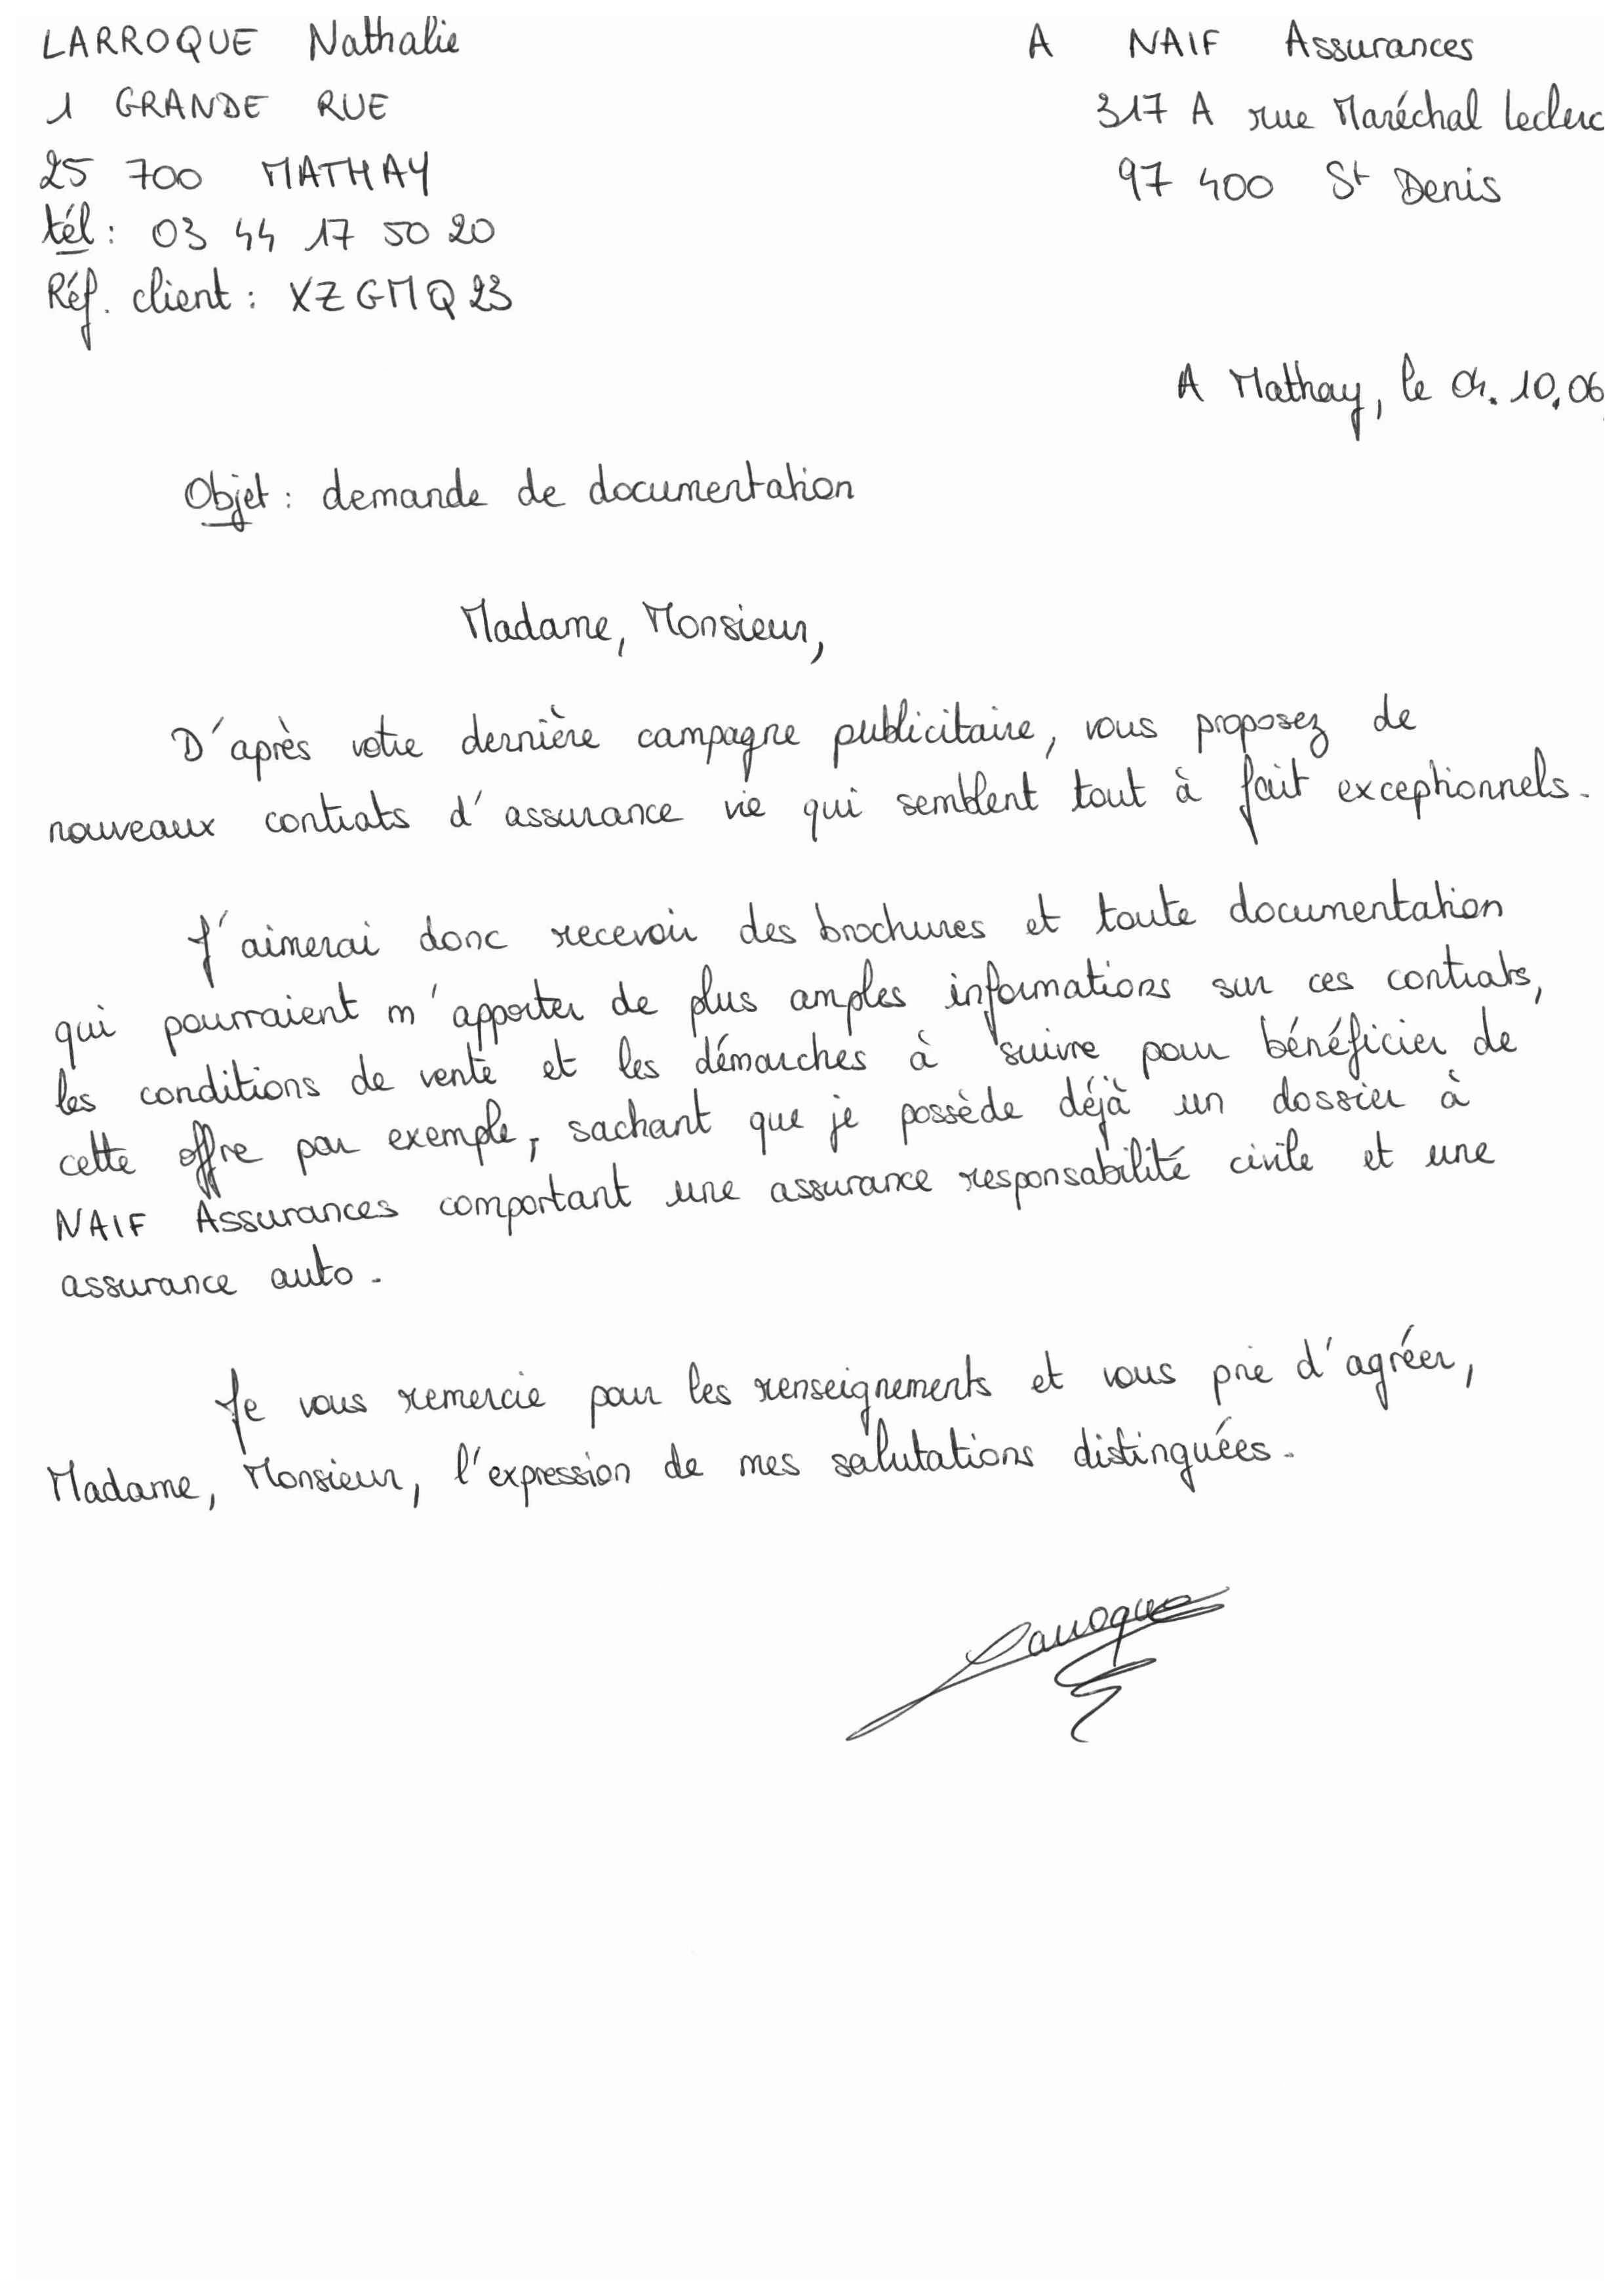 LARROQUE Nathalie
1 GRANDE RUE
25 700 MATHAY
tél : 03 44 17 50 20
Réf. client : XZGMQ23
A NAIF Assurances
317 A rue Maréchal Leclerc
97 400 St Denis
A Mathay, le 04.10.06
Objet : demande de documentation
Madame, Monsieur,
D'après votre dernière campagne publicitaire, vous proposez de
nouveaux contrats d'assurance vie qui semblent tout à fait exceptionnels.
J'aimerai donc recevoir des brochures et toute documentation
qui pourraient m'apporter de plus amples informations sur ces contrats,
les conditions de vente et les démarches à suivre pour bénéficier de
cette offre par exemple, sachant que je possède déjà un dossier à
NAIF Assurances comportant une assurance responsabilité civile et une
assurance auto.
Je vous remercie pour les renseignements et vous prie d'agréer,
Madame, Monsieur, l'expression de mes salutations distinguées.
Larroque